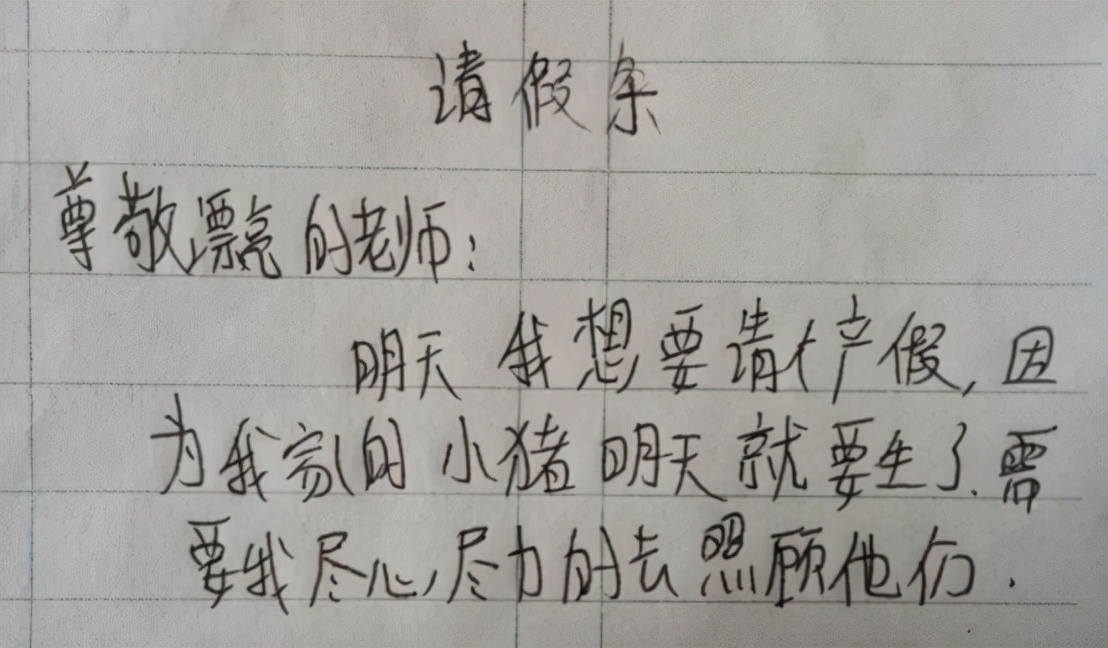 请假条
尊敬漂亮的老师：
明天我想要请个产假，因
为我家的小猪明天就要生了.需
要我尽心,尽力的去照顾他们.